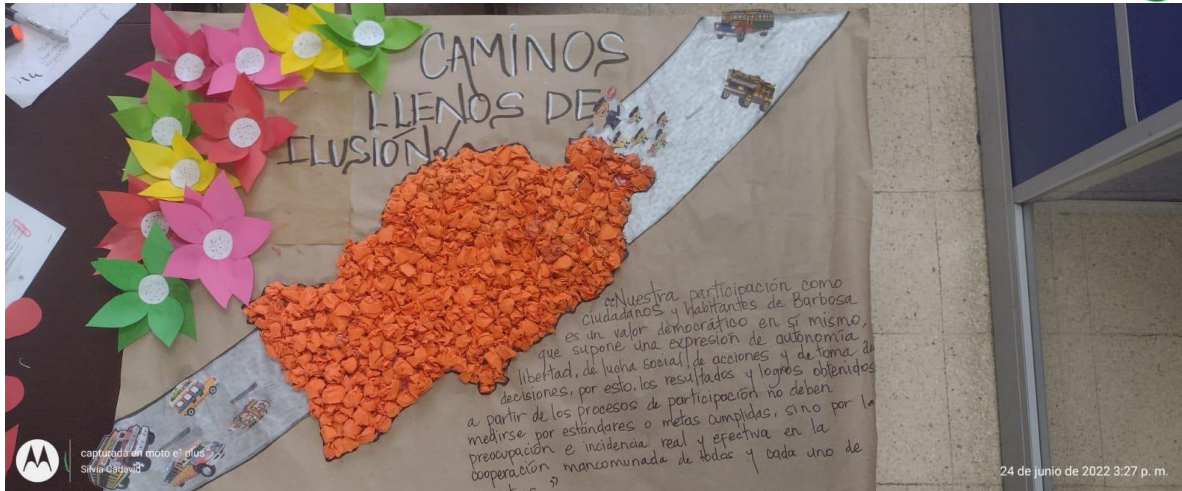 CAMINOS
LLENOS DE
ILUSIÓN!
"Nuestra participación como
ciudadanos y habitantes de Barbosa
es un valor democrático en sí mismo,
que supone una expresión de autonomía
libertad, de lucha social, de acciones y de toma de
decisiones, por esto, los resultados y logros obtenidos
a partir de los procesos de participación no deben
medirse por estándares o metas cumplidas, sino por la
preocupación e incidencia real y efectiva en la
cooperación mancomunada de todos y cada uno de
capturada en moto e⁷ plus
Silvia Cadavid
24 de junio de 2022 3:27 p. m.